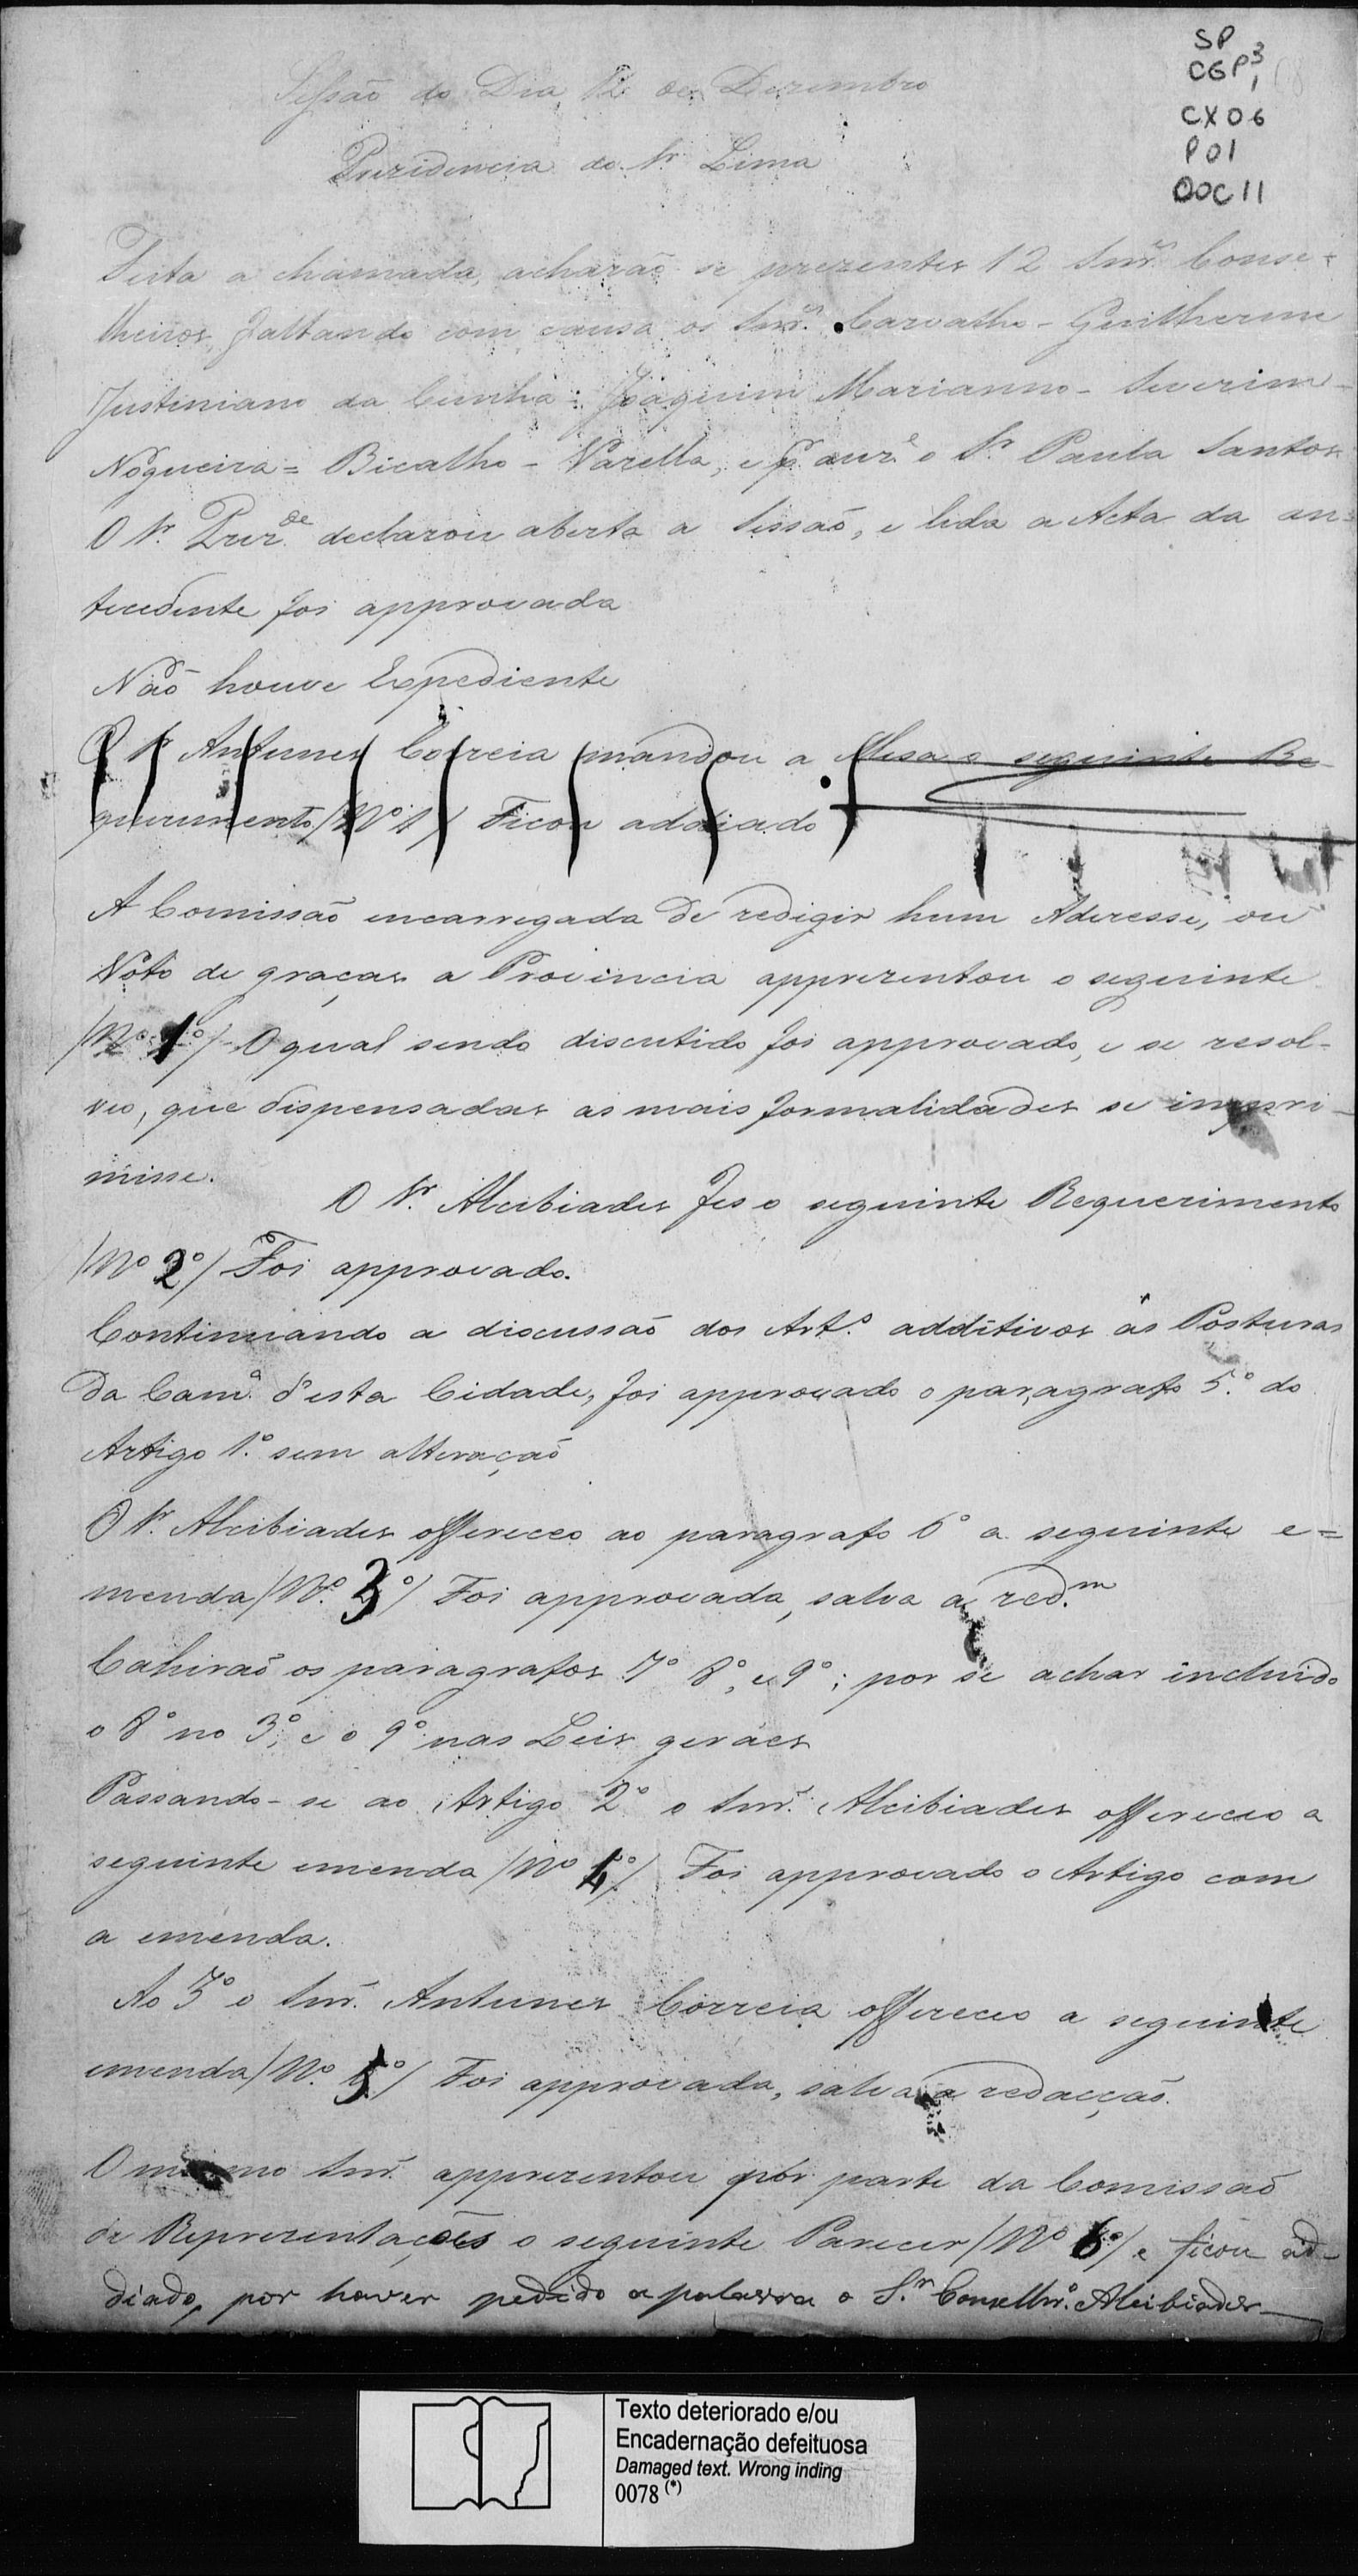 SP
CGP3
CX06
P01
DOC11
Sessão do Dia 12 de Dezembro
Prezidencia do Sr. Lima
Feita a chamada, acharaõ se prezentes 12 Snr.es Conse-
lheiros, faltando com causa os Snr.es Carvalho - Guilherme
Justiniano da Cunha: Joaquim Marianno - Severim -
Nogueira = Bicalho - Varella, e o Sr. Paula Santos
O Sr. Prez.de declarou aberta a Sessaõ, e lida a Acta da an-
tecedente foi approvada
Naõ houve Expediente
O Sr Antunes Correia mandou a Mesa o seguinte Re-
querimento /Nº 1/ Ficou addiado
A Comissaõ encarregada de redigir hum Aderesse, ou
Voto de graças a Provincia apprezentou o seguinte
/Nº 1º/ - O qual sendo discutido foi approvado, e se resol-
veo, que dispensadas as mais formalidades se impri-
misse.
O Sr. Alcibiades fes o seguinte Requerimento
/Nº 2º/ Foi approvado.
Continuando a discussaõ dos Art.º additivos ás Posturas
da Cam.ª d'esta Cidade, foi approvado o paragrafo 5.º do
Artigo 1.º sem alteraçaõ
O Sr. Alcibiades offereceo ao paragrafo 6º a seguinte e=
menda /Nº. 3º/ Foi approvada, salva a red.m
Cahiraõ os paragrafos 7º 8º, e 9º; por se achar incluido
o 8º no 3º, e o 9º nas Leis geraes
Passando-se ao Artigo 2º o Snr. Alcibiades offereceo a
seguinte emenda /Nº 4º/ Foi approvado o Artigo com
a emenda.
Ao 3º o Snr. Antunes Correia offereceo a seguinte
emenda /Nº. 5º/ Foi approvada, salva a redacçaõ.
O mesmo Snr. apprezentou por parte da Comissaõ
de Reprezentações o seguinte Parecer /Nº 6º/ e ficou ad-
diado, por haver pedido a palavra o S.r Conselhr.º Alcibiades
Texto deteriorado e/ou
Encadernação defeituosa
Damaged text. Wrong inding
0078 (*)